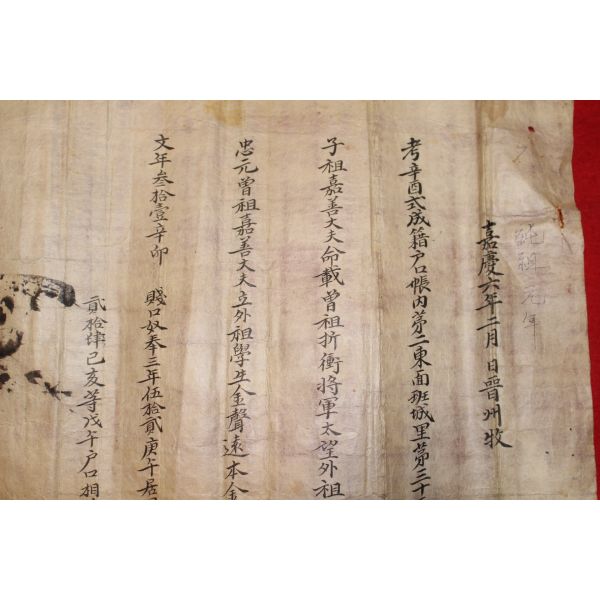 純祖 元年
嘉慶六年二月 日晉州牧
考辛酉式成籍户口帳內苐二東面班城里苐三十
子祖嘉善大夫命載曾祖折衝將軍太望外祖
忠元曾祖嘉善大夫立外祖學生金聲遠本金
文年叁拾壹辛卯 賤口奴奉三年伍拾貳庚午居
貳拾肆己亥等戊午户口相